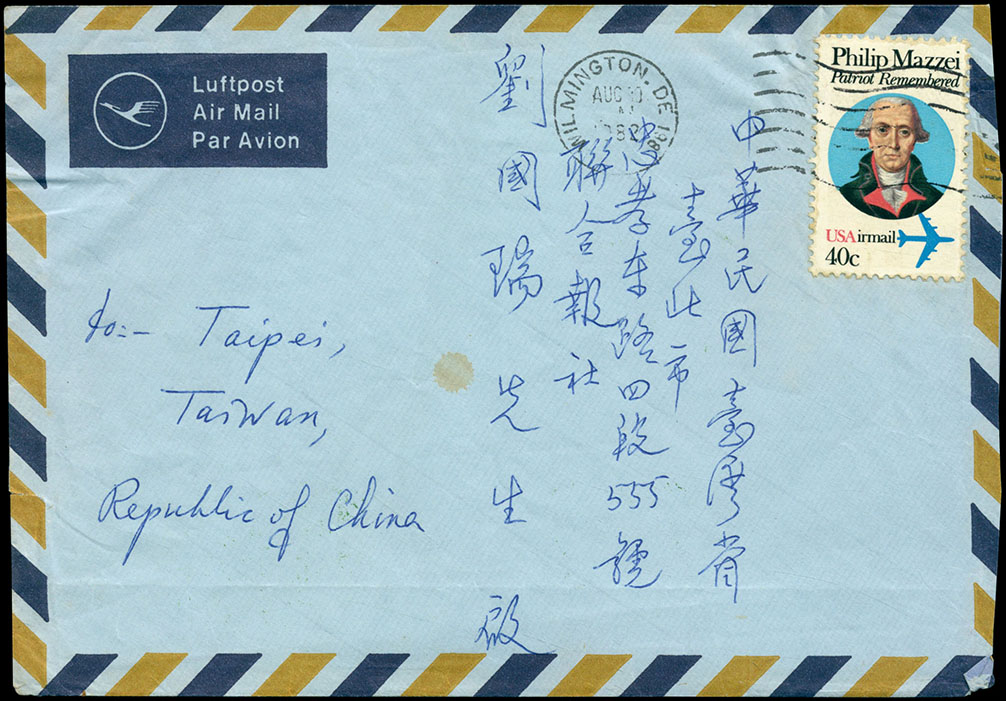 Luftpost
Air Mail
Par Avion
WILMINGTON, DE 198
AUG
Philip Mazzei
Patriot Remembered
USAirmail
40c
中華民國臺灣省
臺北市
忠孝東路四段555號
聯合報社
劉國瑞先生啟
to:- Taipei,
Taiwan,
Republic of China